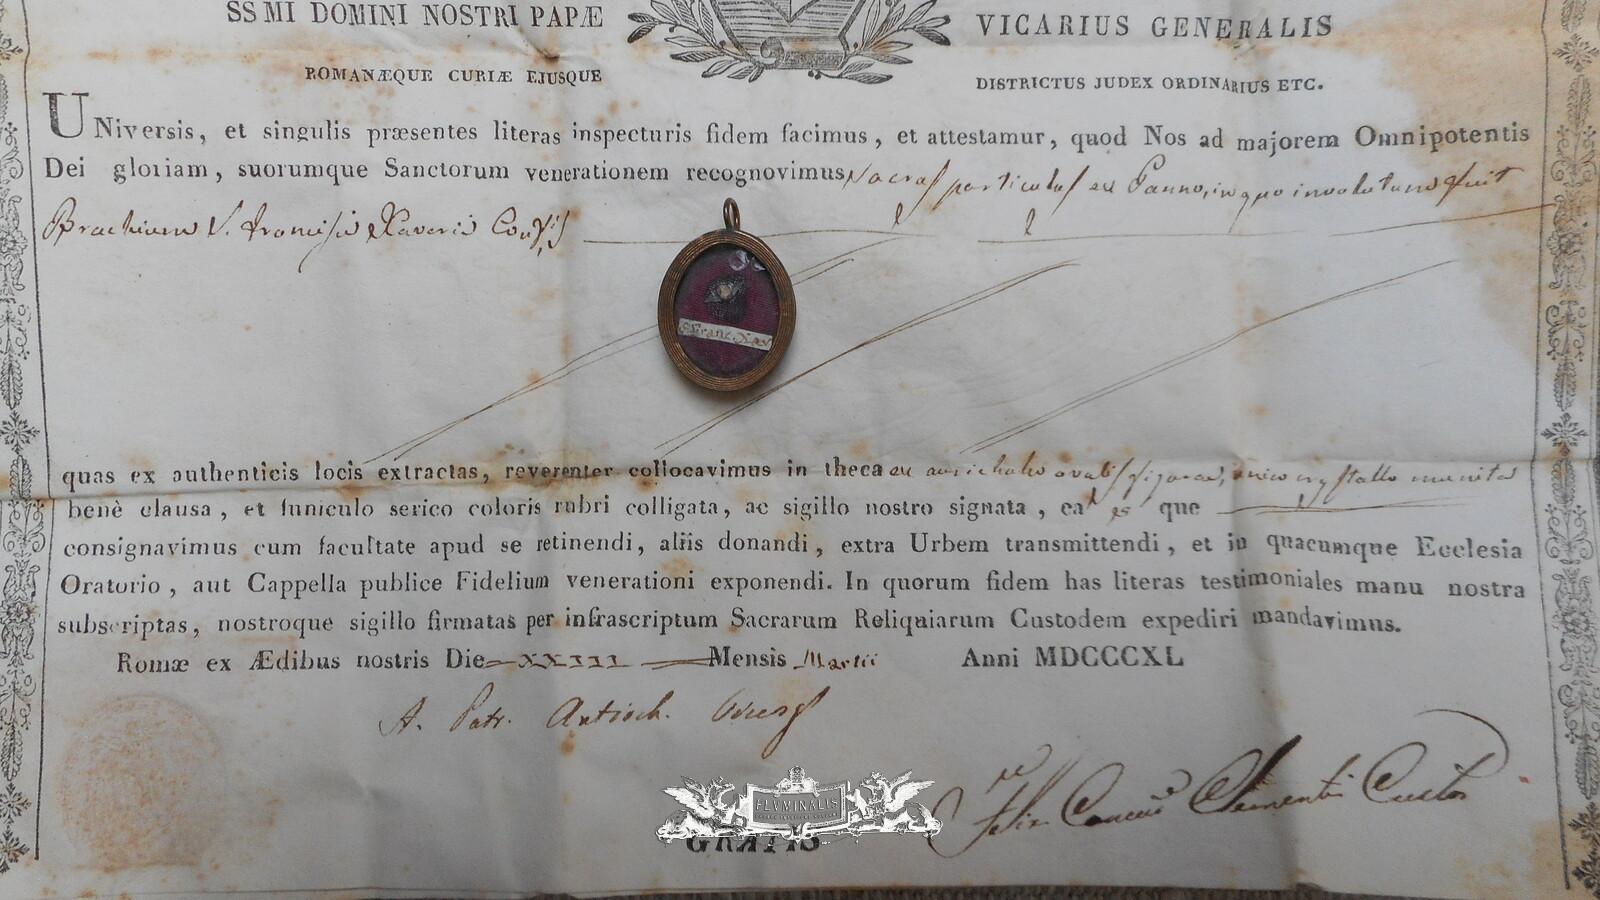 SSMI DOMINI NOSTRI PAPÆ VICARIUS GENERALIS
ROMANÆQUE CURIÆ EJUSQUE DISTRICTUS JUDEX ORDINARIUS ETC.
UNiversis, et singulis præsentes literas inspecturis fidem facimus, et attestamur, quod Nos ad majorem Omnipotentis
Dei gloriam, suorumque Sanctorum venerationem recognovimus Sacras particulas ex Panno, in quo involutum fuit
Brachium S. Francisci Xaverii Conf.is
S. Franc. Xav
quas ex authenticis locis extractas, reverenter collocavimus in theca ex aurichalco ovalis figurae, unico crystallo munita
benè clausa, et funiculo serico coloris rubri colligata, ac sigillo nostro signata, eas que
consignavimus cum facultate apud se retinendi, aliis donandi, extra Urbem transmittendi, et in quacumque Ecclesia
Oratorio, aut Cappella publice Fidelium venerationi exponendi. In quorum fidem has literas testimoniales manu nostra
subscriptas, nostroque sigillo firmatas per infrascriptum Sacrarum Reliquiarum Custodem expediri mandavimus.
Romæ ex Ædibus nostris Die XXIII Mensis Martii Anni MDCCCXL
A. Patr. Antioch. Vicesg
Felix Clementi Custos
FLVMINALIS
GRATIS